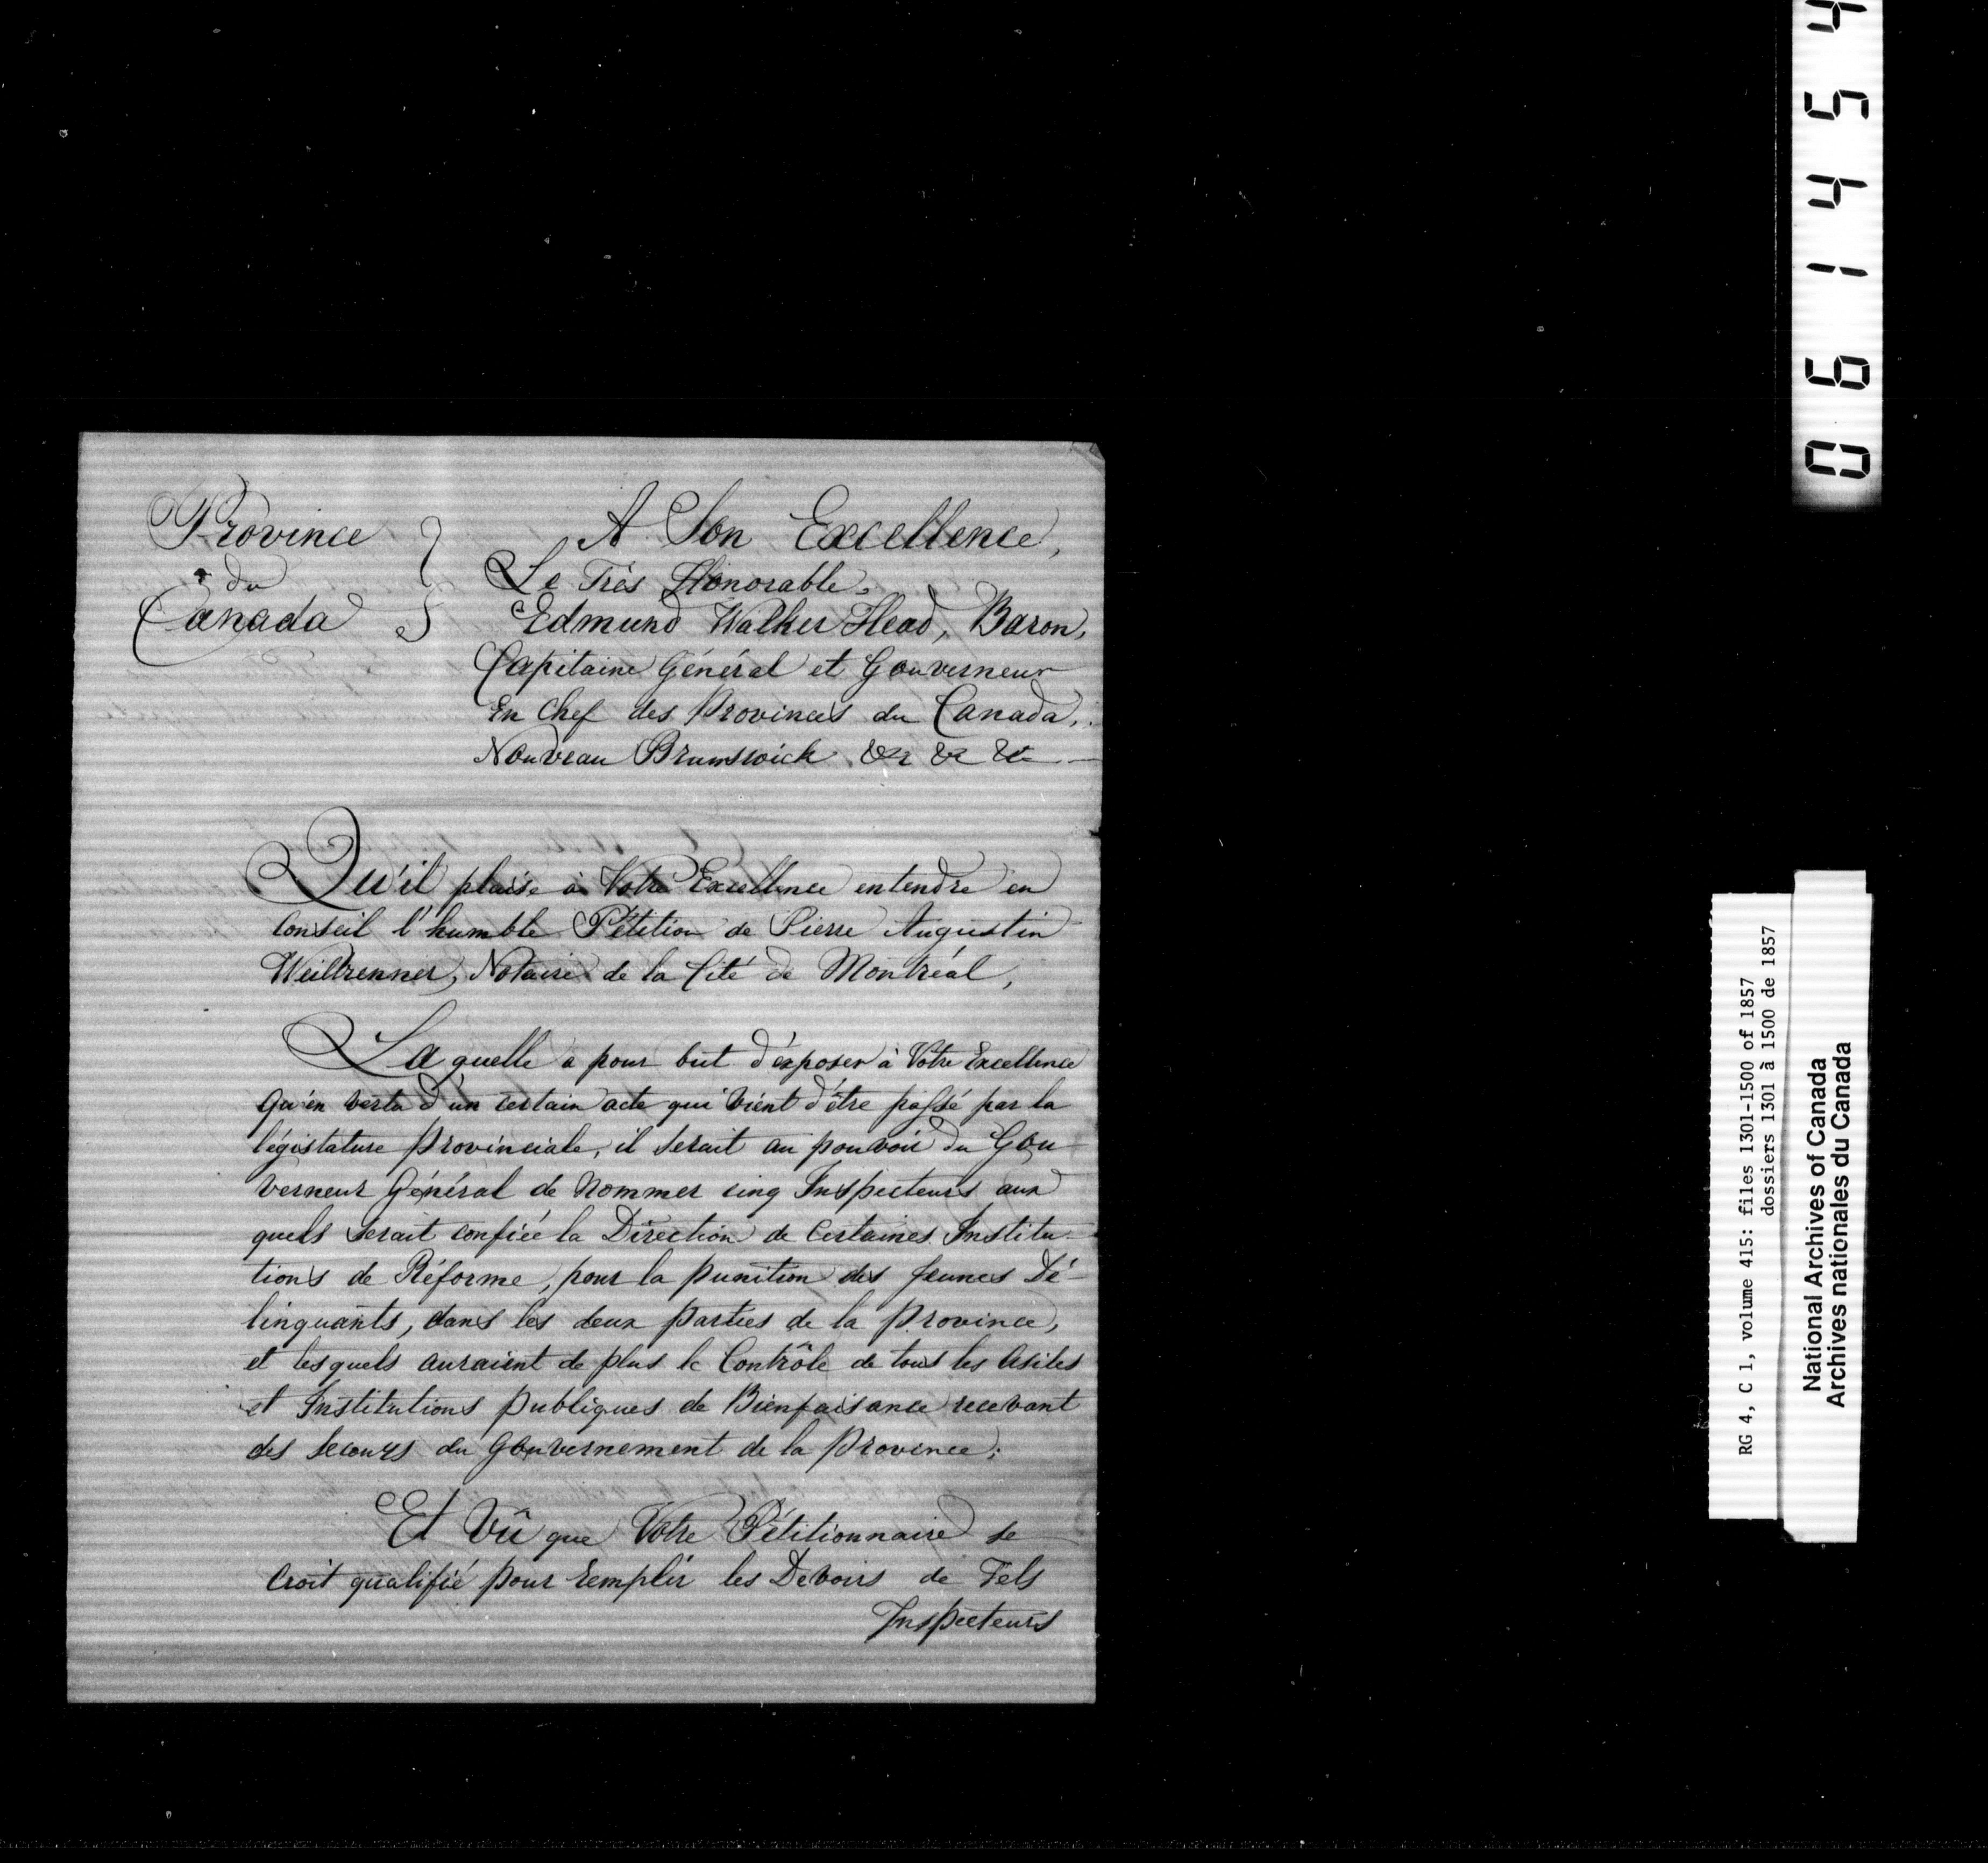 Province
du
Canada
A Son Excellence,
Le Très Honorable,
Edmund Walker Head, Baron,
Capitaine Général et Gouverneur
En Chef des Provinces du Canada,
Nouveau Brunswick &c &c &c
Qu'il plaise à Votre Excellence entendre en
Conseil l'humble Pétition de Pierre Augustin
Weilbrenner, Notaire de la Cité de Montréal,
Laquelle a pour but d'exposer à Votre Excellence
Qu'en vertu d'un certain acte qui vient d'être passé par la
législature Provinciale, il serait au pouvoir du Gou-
verneur Général de Nommer cinq Inspecteurs aux
quels serait confiée la Direction de Certaines Institu-
tions de Réforme, pour la punition des Jeunes Dé-
linquants, dans les deux parties de la Province,
et lesquels auraient de plus le Contrôle de tous les Asiles
et Institutions Publiques de Bienfaisance recevant
des secours du Gouvernement de la Province;
Et Vû que Votre Pétitionnaire se
Croit qualifié pour remplir les Devoirs de Tels
Inspecteurs
061454
RG 4, C 1, volume 415: files 1301-1500 of 1857
dossiers 1301 à 1500 de 1857
National Archives of Canada
Archives nationales du Canada